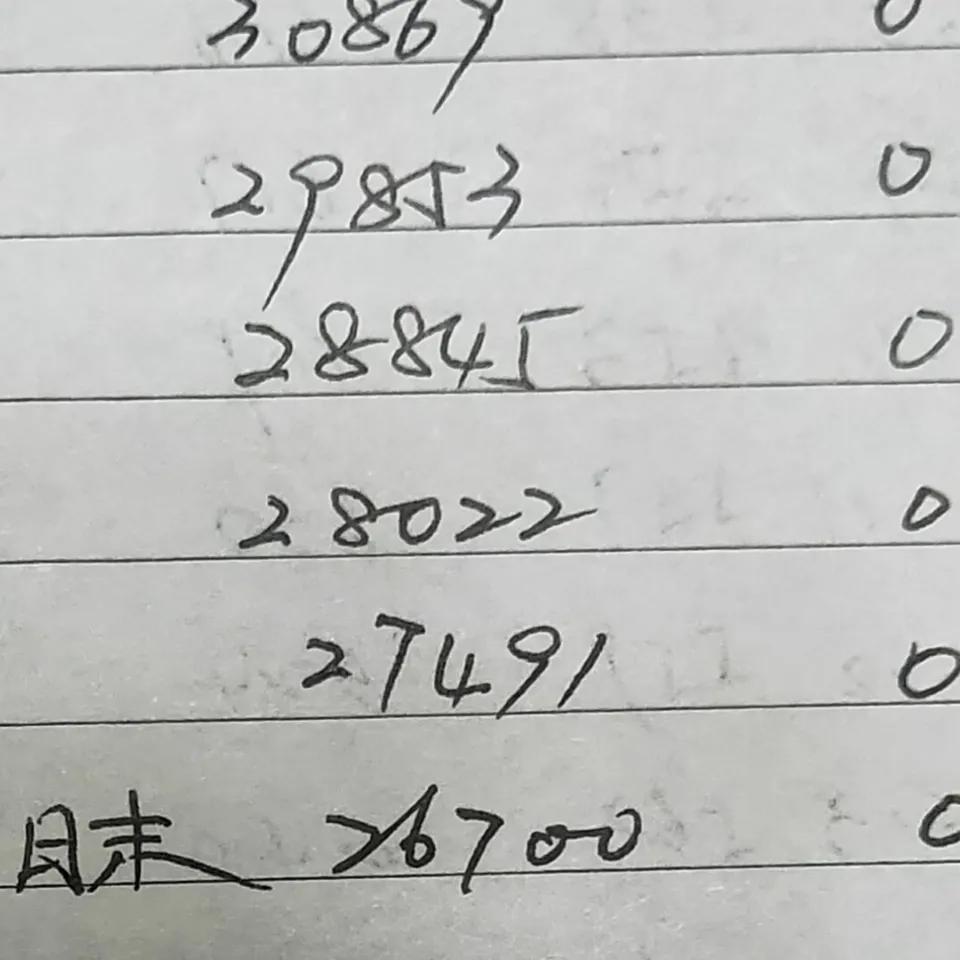 30867 0
29853 0
28845 0
28022 0
27491 0
月末 26700 0